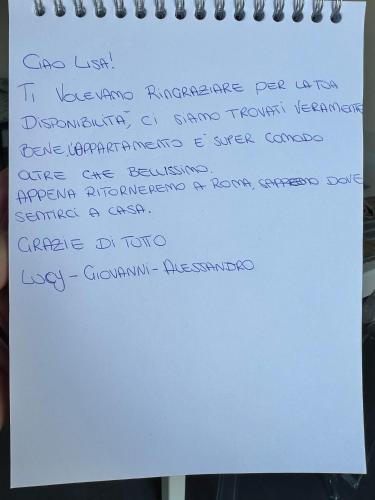 CIAO LISA!
TI VOLEVAMO RINGRAZIARE PER LA TUA
DISPONIBILITÀ, CI SIAMO TROVATI VERAMENTE
BENE, L'APPARTAMENTO È SUPER COMODO
OLTRE CHE BELLISSIMO.
APPENA RITORNEREMO A ROMA, SAPREMO DOVE
SENTIRCI A CASA.
GRAZIE DI TUTTO
LUCY - GIOVANNI - ALESSANDRO